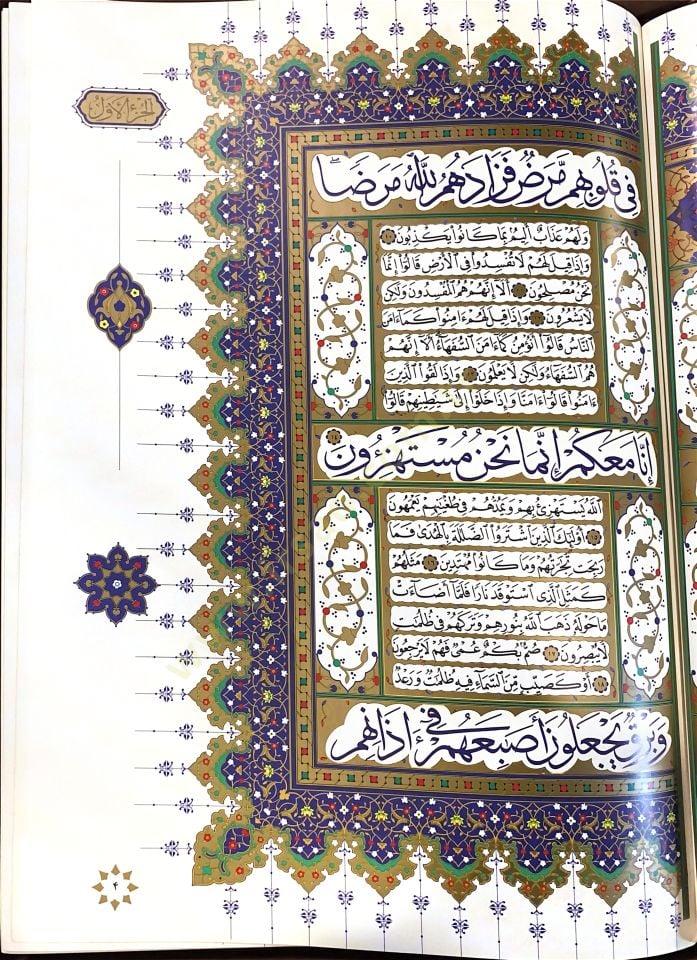 الجزء الأول
فِى قُلُوبِهِم مَّرَضٌ فَزَادَهُمُ ٱللَّهُ مَرَضًا ۖ
وَلَهُمْ عَذَابٌ أَلِيمٌۢ بِمَا كَانُوا۟ يَكْذِبُونَ ١٠
وَإِذَا قِيلَ لَهُمْ لَا تُفْسِدُوا۟ فِى ٱلْأَرْضِ قَالُوٓا۟ إِنَّمَا
نَحْنُ مُصْلِحُونَ ١١ أَلَآ إِنَّهُمْ هُمُ ٱلْمُفْسِدُونَ وَلَٰكِن
لَّا يَشْعُرُونَ ١٢ وَإِذَا قِيلَ لَهُمْ ءَامِنُوا۟ كَمَآ ءَامَنَ
ٱلنَّاسُ قَالُوٓا۟ أَنُؤْمِنُ كَمَآ ءَامَنَ ٱلسُّفَهَآءُ ۗ أَلَآ إِنَّهُمْ
هُمُ ٱلسُّفَهَآءُ وَلَٰكِن لَّا يَعْلَمُونَ ١٣ وَإِذَا لَقُوا۟ ٱلَّذِينَ
ءَامَنُوا۟ قَالُوٓا۟ ءَامَنَّا وَإِذَا خَلَوْا۟ إِلَىٰ شَيَٰطِينِهِمْ قَالُوٓا۟
إِنَّا مَعَكُمْ إِنَّمَا نَحْنُ مُسْتَهْزِءُونَ ١٤
ٱللَّهُ يَسْتَهْزِئُ بِهِمْ وَيَمُدُّهُمْ فِى طُغْيَٰنِهِمْ يَعْمَهُونَ
١٥ أُو۟لَٰٓئِكَ ٱلَّذِينَ ٱشْتَرَوُا۟ ٱلضَّلَٰلَةَ بِٱلْهُدَىٰ فَمَا
رَبِحَت تِّجَٰرَتُهُمْ وَمَا كَانُوا۟ مُهْتَدِينَ ١٦ مَثَلُهُمْ
كَمَثَلِ ٱلَّذِى ٱسْتَوْقَدَ نَارًا فَلَمَّآ أَضَآءَتْ
مَا حَوْلَهُۥ ذَهَبَ ٱللَّهُ بِنُورِهِمْ وَتَرَكَهُمْ فِى ظُلُمَٰتٍ
لَّا يُبْصِرُونَ ١٧ صُمٌّۢ بُكْمٌ عُمْىٌ فَهُمْ لَا يَرْجِعُونَ
١٨ أَوْ كَصَيِّبٍ مِّنَ ٱلسَّمَآءِ فِيهِ ظُلُمَٰتٌ وَرَعْدٌ
وَبَرْقٌ يَجْعَلُونَ أَصَٰبِعَهُمْ فِىٓ ءَاذَانِهِم
٤